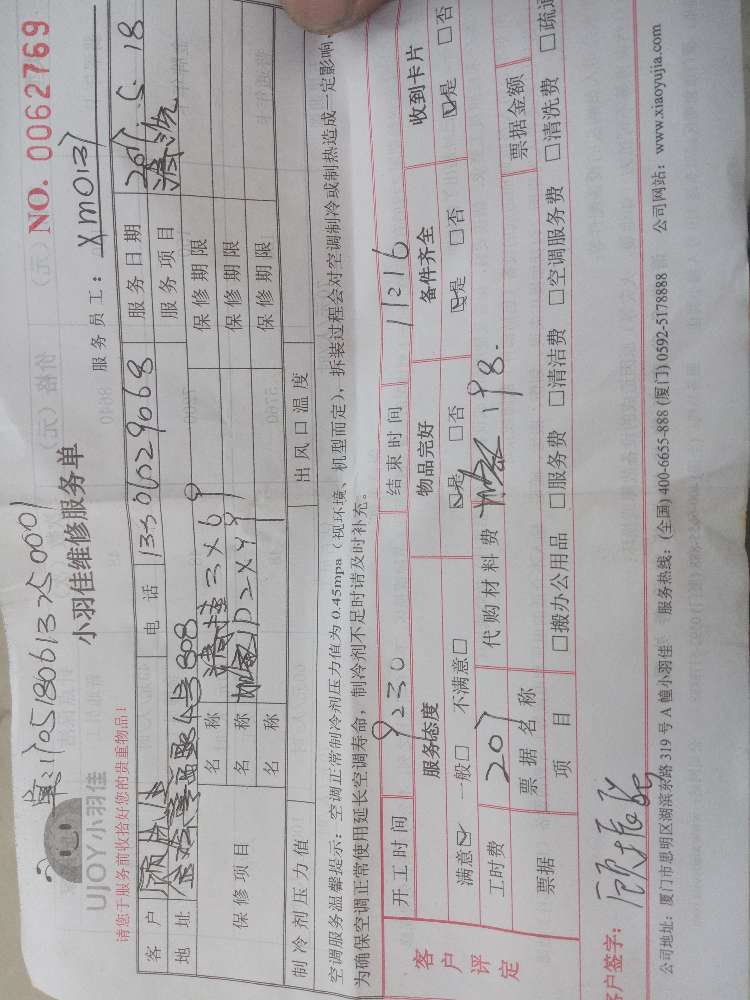 单:1705180613750001
NO. 0062769
UJOY小羽佳
小羽佳维修服务单
服务员工: XM0137
请您于服务前收拾好您的贵重物品!
客 户 电 话 13506029068 服务日期 2017.5.18
地 址 808 服务项目 清洗
保修项目 名 称 保修期限
名 称 保修期限
名 称 保修期限
制冷剂压力值 出风口温度
空调服务温馨提示: 空调正常制冷剂压力值为 0.45mpa (视环境、机型而定), 拆装过程会对空调制冷或制热造成一定影响,
为确保空调正常使用延长空调寿命, 制冷剂不足时请及时补充。
开工时间 9:30 结束时间 11:16
客户评定 服务态度 物品完好 备件齐全 收到卡片
满意☑ 一般□ 不满意□ ☑是 □否 ☑是 □否 ☑是 □否
工时费 207 代购材料费 198.
票据 票据名称 票据金额
项 目 □搬办公用品 □服务费 □清洁费 □空调服务费 □清洗费 □疏通
客户签字:
公司地址: 厦门市思明区湖滨东路 319 号 A 幢小羽佳 服务热线: (全国) 400-6655-888 (厦门) 0592-5178888 公司网站: www.xiaoyujia.com